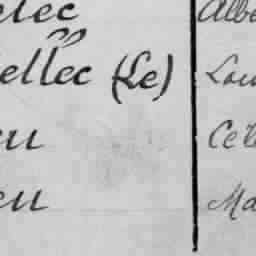 elec Albe
ellec (Le) Lou
eu Cele
eu Ma